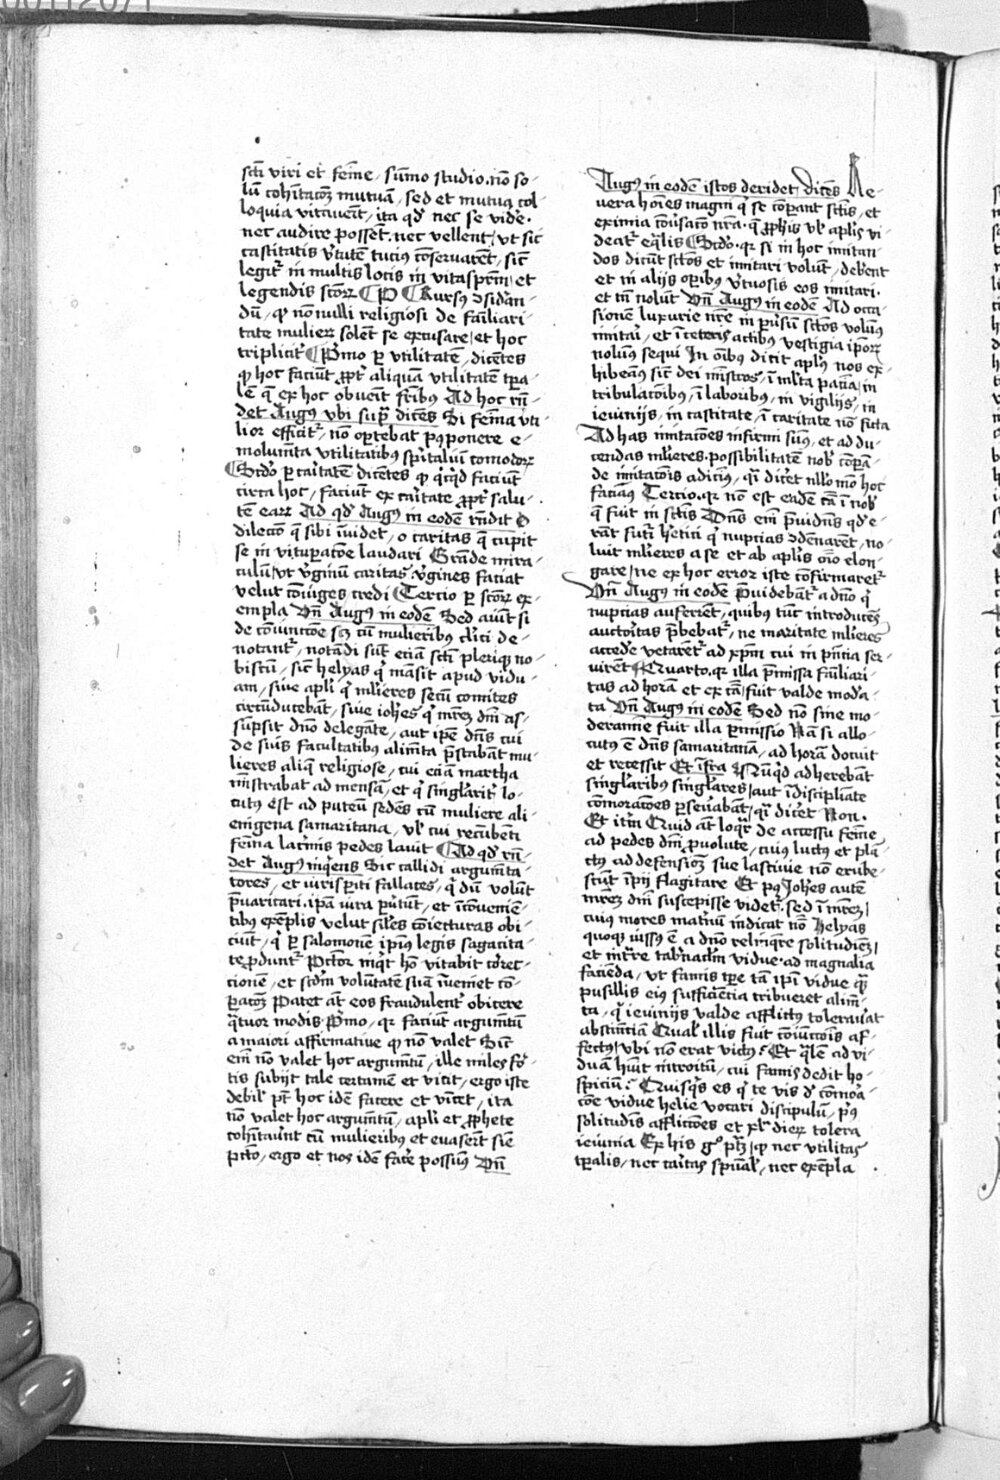 sctī viri et femīe, sūmo studio. nō so-
lū cohītacōꝫ mutuā, sed et mutua col-
loquia vitauerūt, ita qd' nec se vidē.
nec audire possēt. nec vellent, vt sic
castitatis v'tutē tucius cōseruarēt, sic
legit' in multis locis in vitasprm, et
legendis sctoꝝ Rursꝰ ↄsid'an-
dū, qꝫ nōnulli religiosi de familiari-
tate mulieꝝ solent se excusare, et hoc
triplicit' P'mo ꝑ vtilitatē, dicētes
qꝫ hoc faciūt ꝓpt' aliquā vtilitatē tꝑa-
lē q̄ ex hoc obueīt frībꝰ Ad hoc rn̄-
det Augꝰ vbi supᵃ dicēs Si femīa vti-
lior efficit', nō oꝑtebat pꝰponere e-
molumēta vtilitatibꝰ spūaliū comodoꝝ
Scdo ꝑ caritatē dicētes qꝫ q'cq'd faciūt
circa hoc, faciūt ex caritate ꝓpt' salu-
tē eaꝝ Ad qd' Augꝰ in eodē rn̄dit O
dilectio q̄ sibi īuidet, o caritas q̄ cupit
se in vituꝑatōe laudari Grāde mira-
culū, vt v'ginū caritas v'gines faciat
velut cōiuges credi Tercio ꝑ sctoꝝ ex-
empla Vn̄ Augꝰ in eodē Sed aiūt si
de cōiunctōe scꝫ cū mulieribꝰ cl'ici de-
notant', notādi sūt eciā sctī pleriqꝫ no-
biscū, sic helyas q' māsit apud vidu-
am, siue apl'i q' mlieres secū comites
circūducebāt, siue ioh'es q' mr̄eꝫ dn̄i as-
sūpsit dn̄o delegāte, aut ip̄e dn̄s cui
de suis facultatibꝰ alimēta p̄stabāt mu-
lieres aliq̄ religiose, cui eciā martha
mīstrabat ad mensā, et q' singlarit' lo-
cutꝰ est ad puteū sedēs cū muliere ali-
enigena samaritana, vl' cui recūbēti
femīa lacrīmis pedes lauit Ad qd' rn̄-
det Augꝰ inq'ens Sic callidi argumēta-
tores, et viriꝑiti fallaces, q' dū volūt
p̄uaricari. ipā iura ꝑūtūt, et īcōuenie-
tibꝰ exēplis velut sil'es cōiecturas obi-
ciūt, q' ꝑ salomonē ipiꝰ legis sagacita-
te ꝓdunt' Pctor inq't hō vitabit correc-
tionē, et scdm volūtatē suā īueniet cō-
ꝑacōꝫ Patet āt eos fraudulent' obicere
q̄tuor modis P'mo, qꝛ faciūt argumētū
a maiori affirmatiue qꝫ nō valet Sic
em̄ nō valet hoc argumētū, ille miles for-
tis subijt tale certamē et vicit, ergo iste
debil' pt̄ hoc idē facere et vīcet, ita
nō valet hoc argumētū, apl'i et ꝓphete
cohītauerūt cū mulieribꝰ et euaserūt sine
pctō, ergo et nos idē facē possumꝰ Vn̄
Augꝰ in eodē istos deridet, dicēs Re-
vera hoīes magni q' se cōꝑant sctīs, et
eximia cōuersacō nr̄a. q̄ ꝓphīs vl' apl'is vi-
deat' eq̄lis Scdo. qꝛ si in hoc imitan-
dos dicūt sctōs et imitari volūt, debent
et in alijs oꝑibꝰ v'tuosis eos imitari.
et tn̄ nolūt Vn̄ Augꝰ in eodē Ad occa-
sionē luxurie nr̄e in ꝑuersū sctōs volumꝰ
imitari, et ī ceteris actibꝰ vestigia ipoꝝ
nolumꝰ sequi In oībꝰ dicit apl'us nos ex-
hibeamꝰ sic dei mīstros, ī mlta paciētia, in
tribulacōibꝰ, ī laboribꝰ, in vigilijs, in
ieiunijs, in castitate, ī caritate nō ficta
Ad has imitacōes infirmi sumꝰ, et ad du-
cendas mlieres. possibilitatē nob' cōꝑa-
de imitacōis adicimꝰ, q' dicēt nllo mō hoc
faciamꝰ Tercio. qꝛ nō est eadē cā ī nob'
q̄ fuit in sctīs Dn̄s em̄ p̄uidns qd' e-
rāt futūi h'etici q' nuptias ↄdēnarēt, no-
luit mlieres a se et ab apl'is oīo elon-
gare, ne ex hoc error iste cōfirmaret'
Vn̄ Augꝰ in eodē P̄uidebant' a dn̄o q'
nuptias auferrēt, quibus tūc introducēs
auctoritas p̄bebat', ne maritate mlieres
accedē vetarēt' ad xp̄m cui in pn̄cia ser-
uirēt Quarto. qꝛ illa p̄missa familiari-
tas ad horā et ex cā fuit valde mod'a-
ta Vn̄ Augꝰ in eodē Sed nō sine mo-
deramīe fuit illa ꝑmissio Nā si allo-
cutꝰ ē dn̄s samaritanā, ad horā docuit
et recessit Et īfra Nūq'd adherebāt
singlaribus singlares, aut īdisciplīate
cōmoracōes ꝑseuerabāt, q' dicēt Non.
Et itm̄ Quid āt loq̄r de accessu femīe,
ad pedes dn̄i ꝓuolute, cuiꝰ luctꝰ et plā-
ctꝰ ad defensionꝫ sue lasciuie nō erube-
scūt īpij flagitare Et pꝰ Joh'es autē
mr̄eꝫ dn̄i suscepisse videt'. sed ī mr̄eꝫ,
cuiꝰ mores matrem indicat nō Helyas
quoqꝫ iussꝰ ē a dn̄o relinq̄re solitudinē,
et intr̄re tab'nac'lm vidue. ad magnalia
facienda, vt famis tꝑe tā ipī vidue qꝫ
pusillis eiꝰ sufficiencia tribueret alimē-
ta, q' ieiunijs valde afflictꝰ tolerauit
abstinēciā Qual' illis fuit cōiunctōis af-
fectꝰ, vbi nō erat victꝰ: Et q'le ad vi-
duā habuit introitū, cui famis dedit ho-
spiciū: Quisq's es q' te vis d' cōmora-
cōe vidue helie vocari discipulū, pꝰ
solitudīs afflictōes et xl' dieꝝ tolera
ieiunia Ex his gᵒ ptꝫ, qꝫ nec vtilitas
tꝑalis, nec caritas spūal', nec exēpla